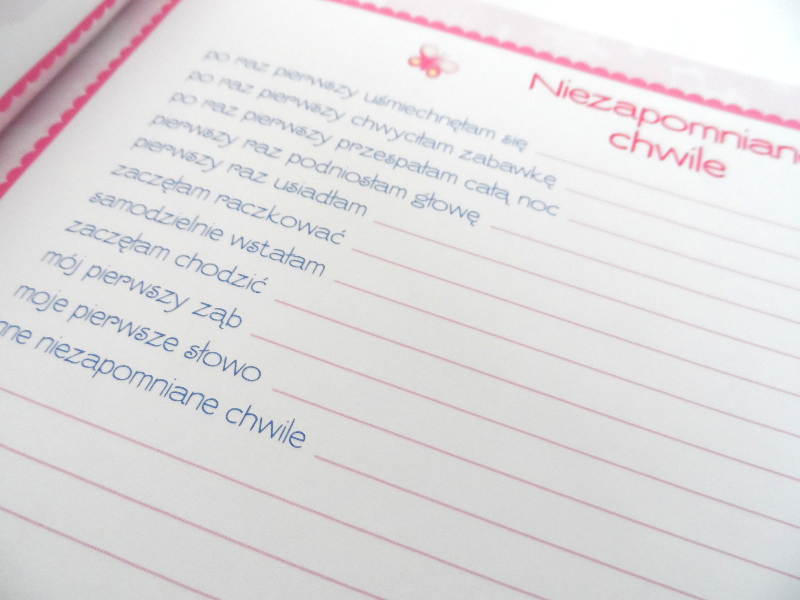 Niezapomniane
chwile
po raz pierwszy uśmiechnęłam się
po raz pierwszy chwyciłam zabawkę
po raz pierwszy przespałam całą noc
pierwszy raz podniosłam głowę
pierwszy raz usiadłam
zaczęłam raczkować
samodzielnie wstałam
zaczęłam chodzić
mój pierwszy ząb
moje pierwsze słowo
inne niezapomniane chwile